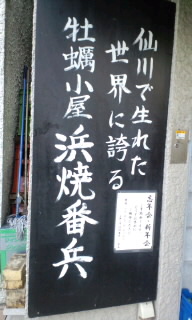 仙川で生れた
世界に誇る
牡蠣小屋 浜焼番兵
忘年会・新年会